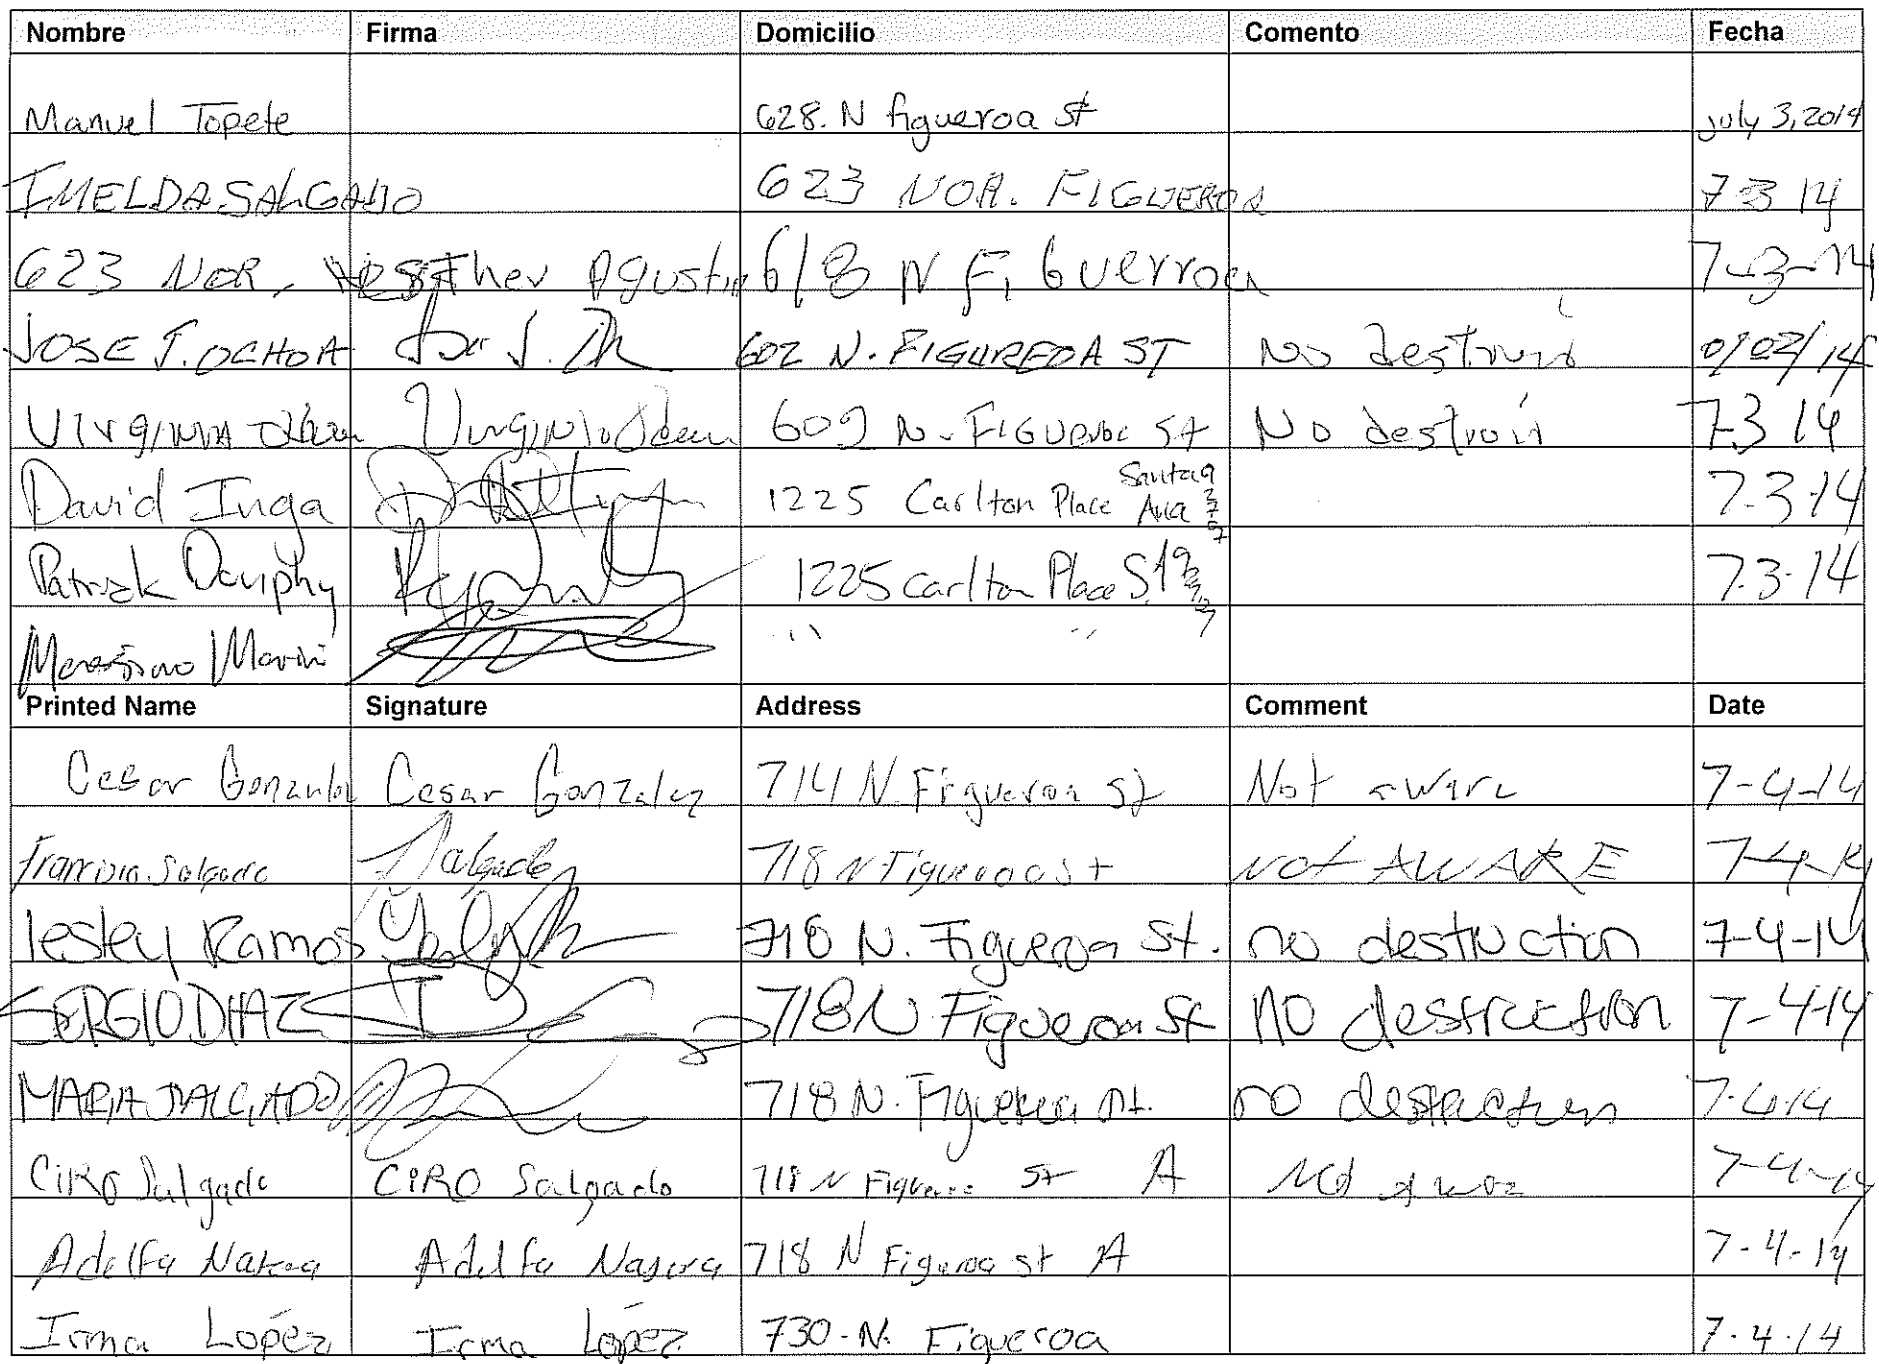 Nombre Firma Domicilio Comento Fecha
Manuel Topete 628. N figueroa st july 3, 2014
IMELDA SALGADO 623 NOR. FIGUEROA 7 3 14
623 NOR, Esther Agustin 618 N Fi Guerroa 7-3-14
JOSE J. OCHOA 602 N. FIGUREOA ST No destruir 14
VIrgINIA Virginia 609 N. FIGUEROA St No destroir 7.3 14
David Inga 1225 Carlton Place Santa Ana 7-3-14
Patrick 1225 Carlton Place S.A 7.3.14
" "
Printed Name Signature Address Comment Date
Cesar Gonzalez Cesar Gonzalez 714 N. Figueroa St Not aware 7-4-14
Salgado Salgado 718 N Figueroa St Not AWARE 7-4-14
lesley Ramos 718 N. Figueroa St. no destruction 7-4-14
SERGIO DIAZ 718 N Figueroa St no destruction 7-4-14
MARIA SALGADO 718 N. Figueroa St. no 7.4.14
CiRO Salgado CiRO Salgado 718 N Figueroa St A Not 7-4-14
Adelfa Adelfa 718 N Figueroa st A 7-4-14
Irma López Irma López 730-N. Figueroa 7.4.14